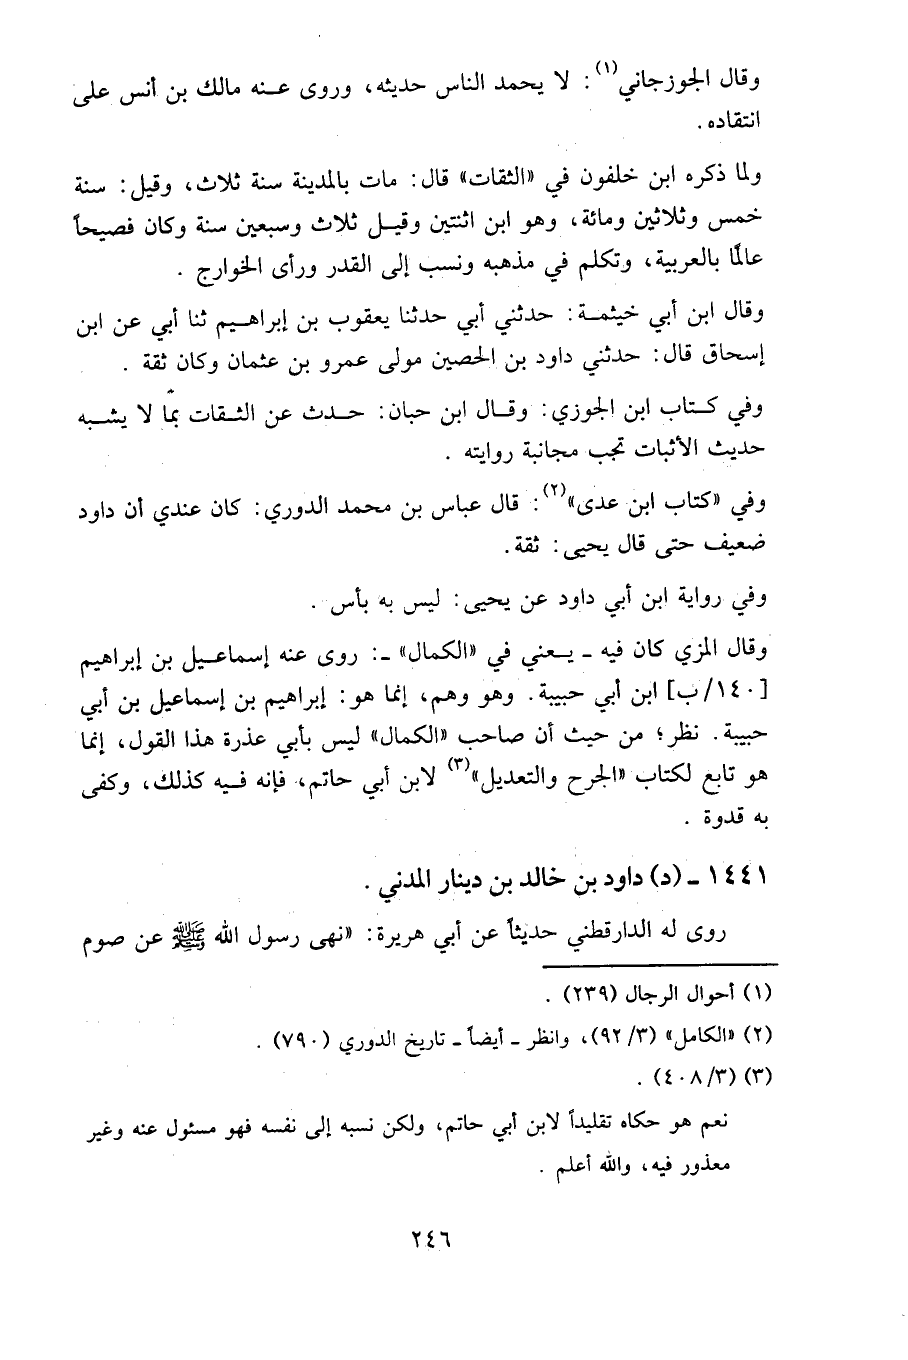 وقال الجوزجاني(١): لا يحمد الناس حديثه، وروى عنه مالك بن أنس على
انتقاده.
ولما ذكره ابن خلفون في «الثقات» قال: مات بالمدينة سنة ثلاث، وقيل: سنة
خمس وثلاثين ومائة، وهو ابن اثنتين وقيل ثلاث وسبعين سنة وكان فصيحاً
عالمًا بالعربية، وتكلم في مذهبه ونسب إلى القدر ورأى الخوارج .
وقال ابن أبي خيثمة: حدثني أبي حدثنا يعقوب بن إبراهيم ثنا أبي عن ابن
إسحاق قال: حدثني داود بن الحصين مولى عمرو بن عثمان وكان ثقة .
وفي كتاب ابن الجوزي: وقال ابن حبان: حدث عن الثقات بمّا لا يشبه
حديث الأثبات تجب مجانبة روايته .
وفي «كتاب ابن عدى»(٢): قال عباس بن محمد الدوري: كان عندي أن داود
ضعيف حتى قال يحيى: ثقة.
وفي رواية ابن أبي داود عن يحيى: ليس به بأس .
وقال المزي كان فيه ـ يعني في «الكمال» ـ: روى عنه إسماعيل بن إبراهيم
[١٤٠/ب] ابن أبي حبيبة. وهو وهم، إنما هو: إبراهيم بن إسماعيل بن أبي
حبيبة. نظر؛ من حيث أن صاحب «الكمال» ليس بأبي عذرة هذا القول، إنما
هو تابع لكتاب «الجرح والتعديل»(٣) لابن أبي حاتم، فإنه فيه كذلك، وكفى
به قدوة .
١٤٤١ ـ (د) داود بن خالد بن دينار المدني .
روى له الدارقطني حديثاً عن أبي هريرة: «نهى رسول الله ﷺ عن صوم
(١) أحوال الرجال (٢٣٩) .
(٢) «الكامل» (٩٢/٣)، وانظر ـ أيضاً ـ تاريخ الدوري (٧٩٠) .
(٣) (٤٠٨/٣) .
نعم هو حكاه تقليداً لابن أبي حاتم، ولكن نسبه إلى نفسه فهو مسئول عنه وغير
معذور فيه، والله أعلم .
٢٤٦